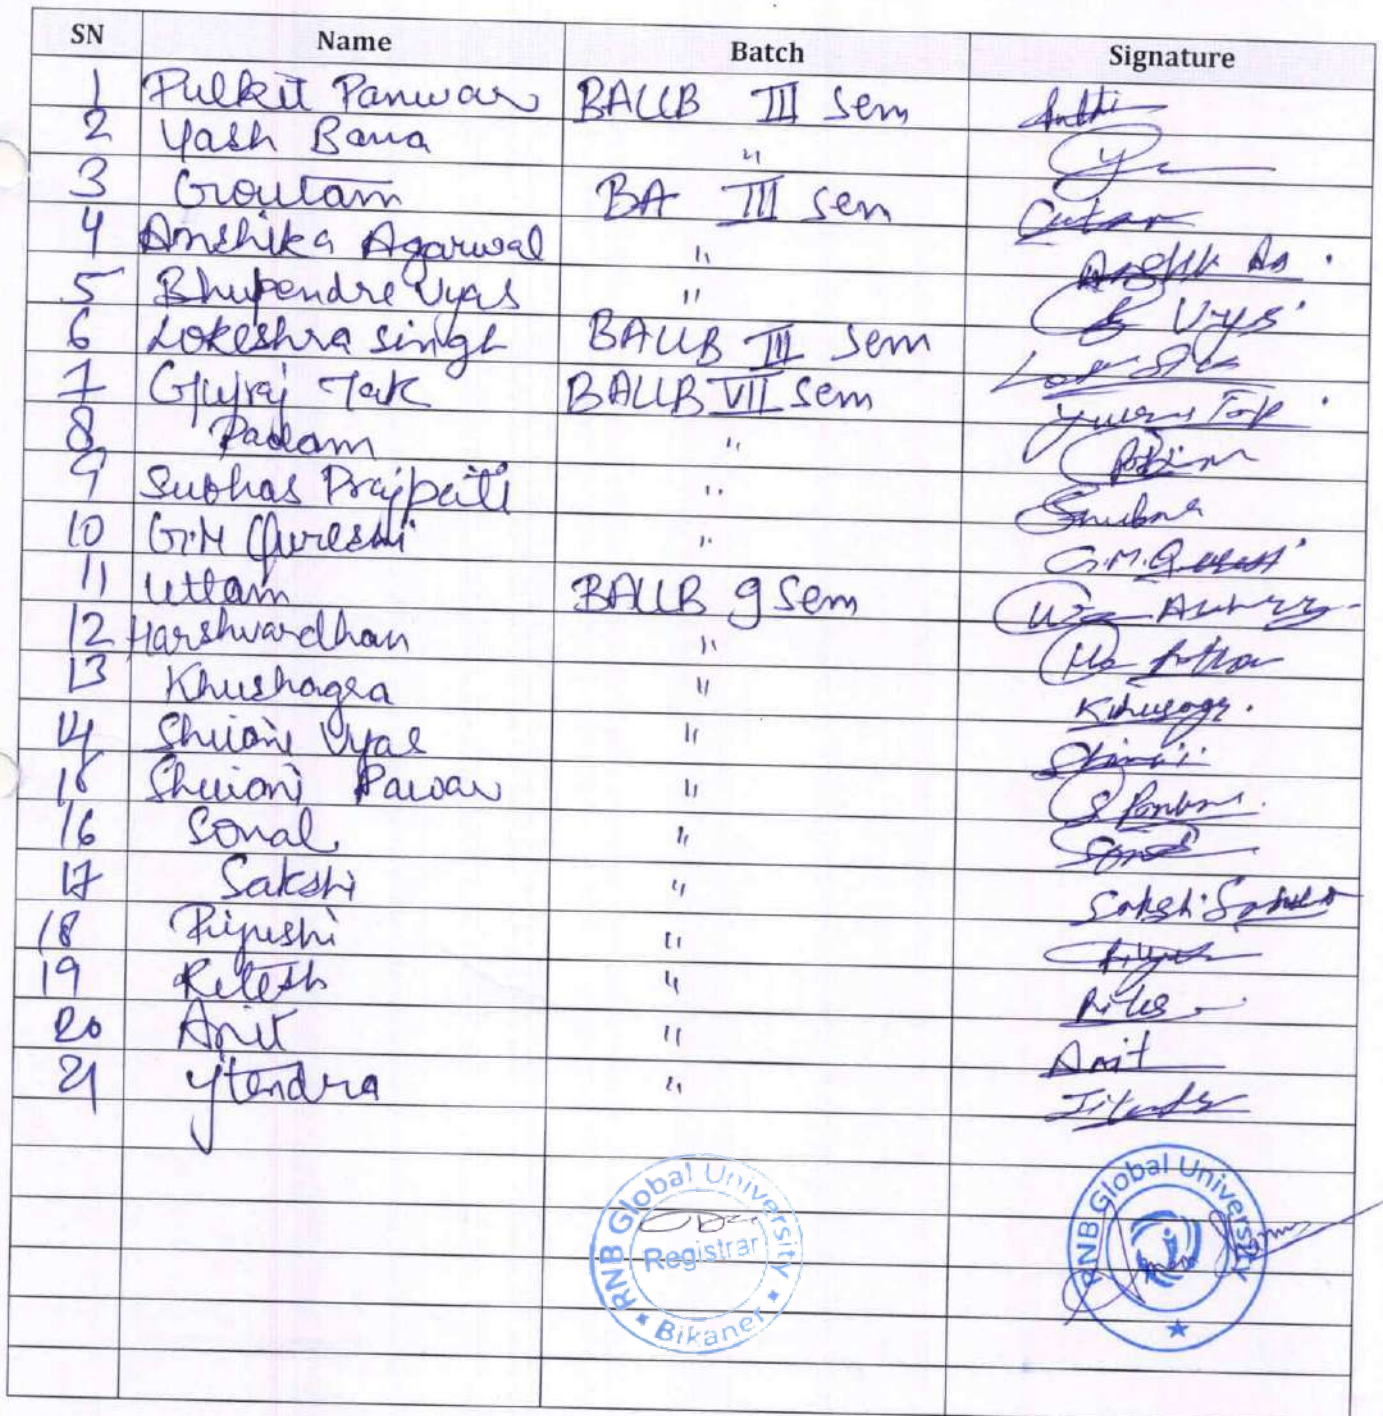 SN Name Batch Signature
1 Pulkit Panwar BALLB III Sem
2 Yash Bana "
3 Goutam BA III Sem
4 Anshika Agarwal "
5 Bhupendre Vyas " Vyas
6 Lokeshra Singh BALLB III Sem
7 Gujraj Tak BALLB VII Sem
8 Padam "
9 Subhas Prajpati "
10 G.M Qureshi " G.M.Qureshi
11 Uttam BALLB 9 Sem
12 Harshvardhan "
13 Khushagra "
14 Shivani Vyas "
15 Shivani Pawar "
16 Sonal "
17 Sakshi " Sakshi
18 Rijushi "
19 Ritesh " Rites
20 Anit " Anit
21 Jitendra "
RNB Global University
Registrar
Bikaner
RNB Global University